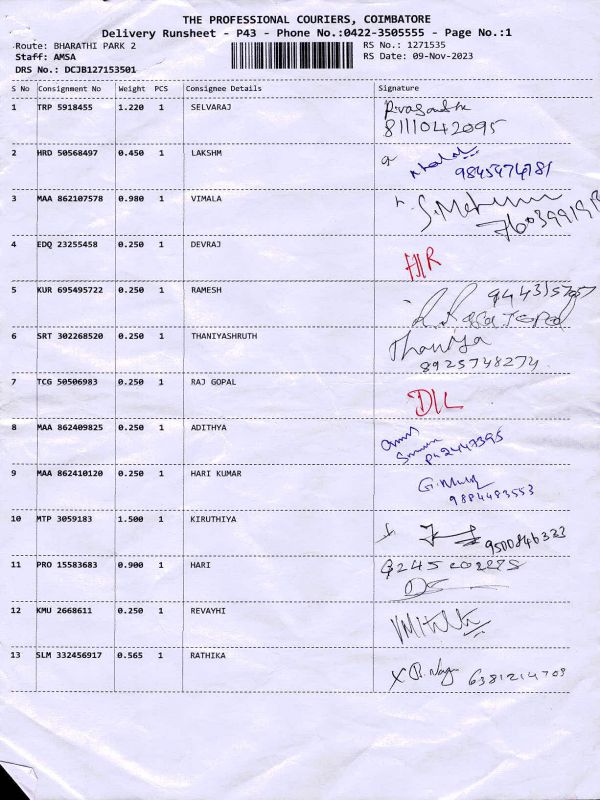 THE PROFESSIONAL COURIERS, COIMBATORE
Delivery Runsheet - P43 - Phone No.:0422-3505555 - Page No.:1
Route: BHARATHI PARK 2 RS No.: 1271535
Staff: AMSA RS Date: 09-Nov-2023
DRS No.: DCJB127153501
S No Consignment No Weight PCS Consignee Details Signature
1 TRP 5918455 1.220 1 SELVARAJ
8111042095
2 HRD 50568497 0.450 1 LAKSHM
9845974781
3 MAA 862107578 0.980 1 VIMALA
4 EDQ 23255458 0.250 1 DEVRAJ
5 KUR 695495722 0.250 1 RAMESH
6 SRT 302268520 0.250 1 THANIYASHRUTH Thaniya
8925748274
7 TCG 50506983 0.250 1 RAJ GOPAL
8 MAA 862409825 0.250 1 ADITHYA
9 MAA 862410120 0.250 1 HARI KUMAR
9884483553
10 MTP 3059183 1.500 1 KIRUTHIYA
9500846323
11 PRO 15583683 0.900 1 HARI
12 KMU 2668611 0.250 1 REVAYHI
13 SLM 332456917 0.565 1 RATHIKA